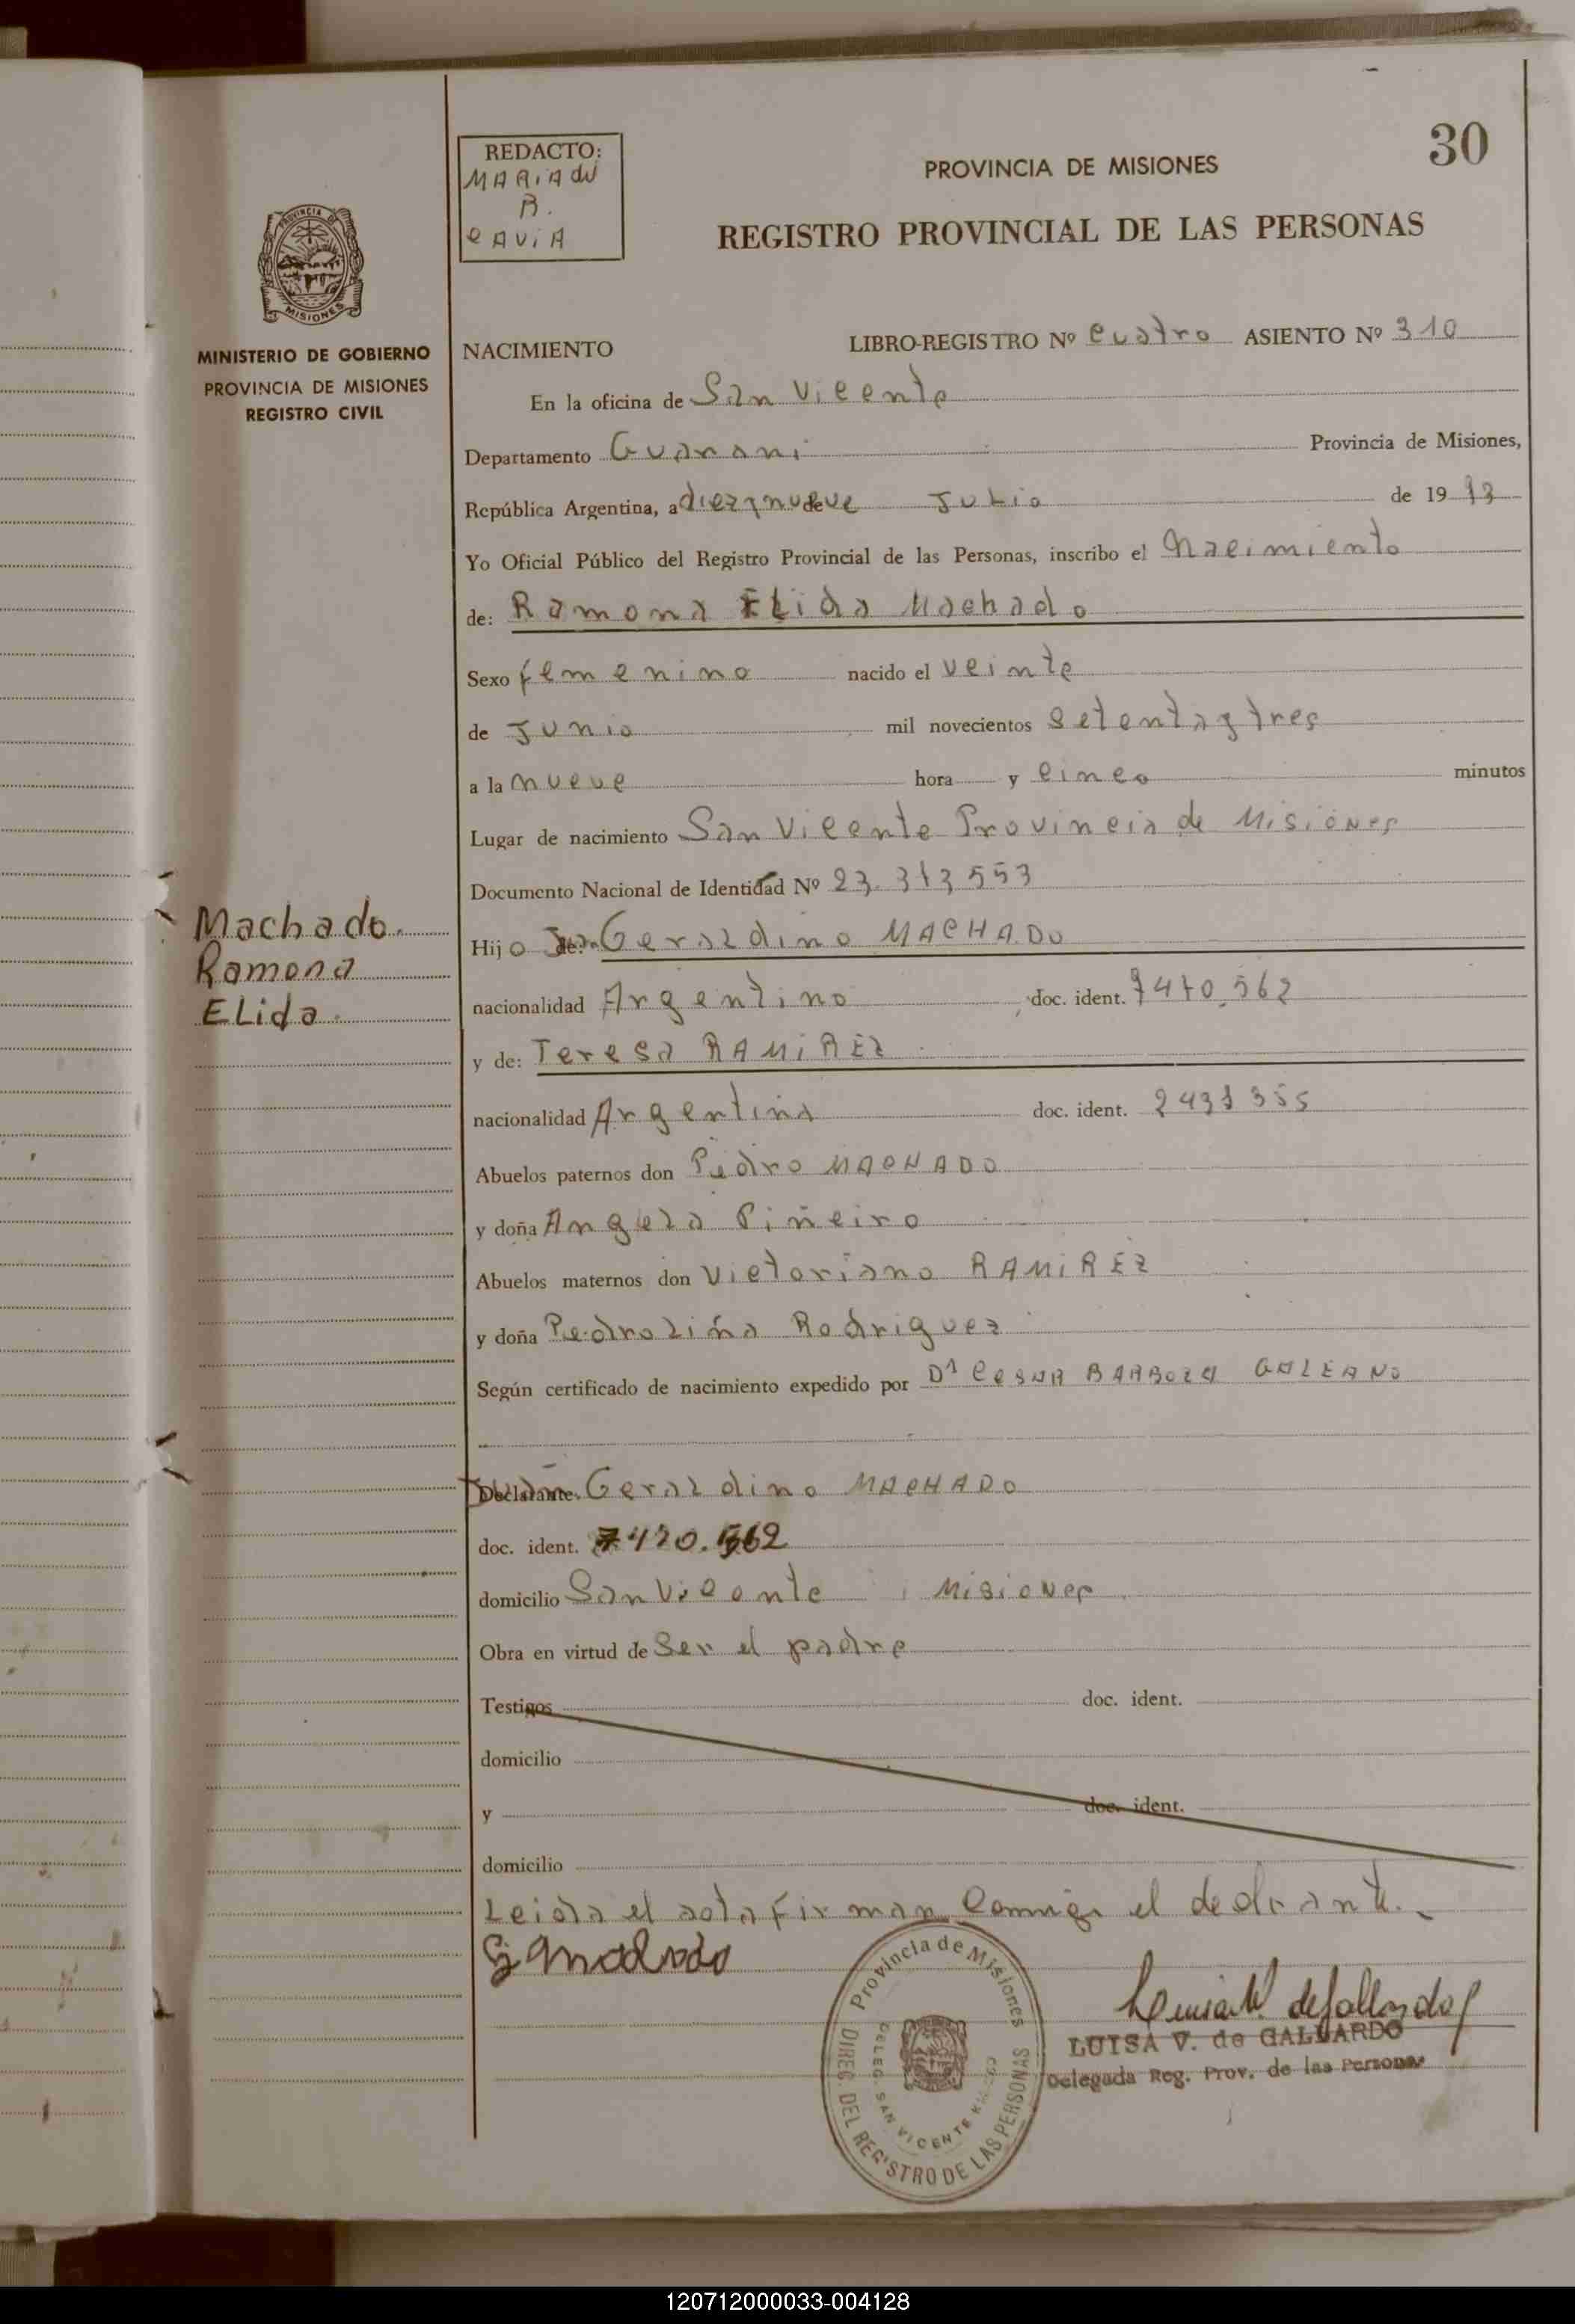 30
REDACTO:
MARIA du
B.
CAViA
PROVINCIA DE MISIONES
REGISTRO PROVINCIAL DE LAS PERSONAS
PROVINCIA DE
MISIONES
MINISTERIO DE GOBIERNO
PROVINCIA DE MISIONES
REGISTRO CIVIL
NACIMIENTO LIBRO-REGISTRO Nº Cuatro ASIENTO Nº 310
En la oficina de San Vicente
Departamento Guarani Provincia de Misiones,
República Argentina, a diezynueve de Julio de 19 73
Yo Oficial Público del Registro Provincial de las Personas, inscribo el Nacimiento
de: Ramona ELida Machado
Sexo femenino nacido el veinte
de Junio mil novecientos setentaytres
a la nueve hora y cinco minutos
Lugar de nacimiento San Vicente Provincia de Misiones
Documento Nacional de Identidad Nº 23.313553
Machado.
Ramona
ELida.
Hijo de: Juan Geraldino MACHADO
nacionalidad Argentino doc. ident. 7470.562
y de: Teresa RAMiREZ
nacionalidad Argentina doc. ident.
Abuelos paternos don Pedro MACHADO
y doña Angela Piñeiro
Abuelos maternos don Victoriano RAMiREZ
y doña Pedrolina Rodriguez
Según certificado de nacimiento expedido por Dr CESAR BARBOZA GALEANO
Declarante. Juan Geraldino MACHADO
doc. ident. 7470.562
domicilio San Vicente, Misiones
Obra en virtud de Ser el padre
Testigos doc. ident.
domicilio
y doc. ident.
domicilio
Leida el acta firman Conmigo el declarante.
G Machado
Provincia de Misiones
DIREC. DEL REGISTRO DE LAS PERSONAS
DELEG. SAN VICENTE
LUISA V. de GALLARDO
Delegada Reg. Prov. de las Personas
120712000033-004128